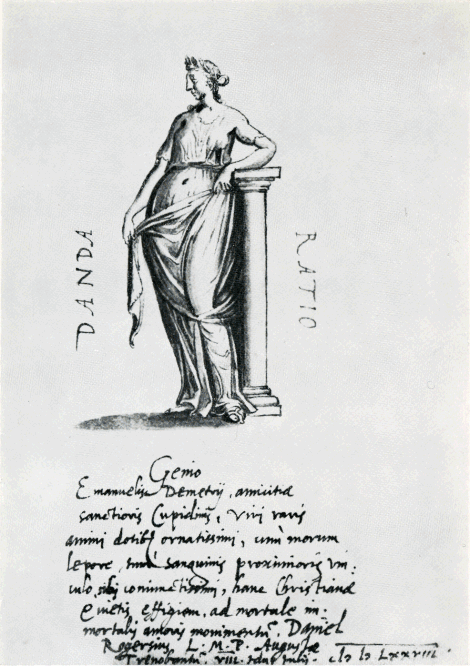 DANDA
RATIO
Genio
Emanuelis Demetrij, amicitiæ
sanctioris Cupidiss, Viri raris
animi dotibus ornatissimi, cum morum
lepore, tum sanguinis proximioris vin:
culo sibi coniunctissimi, hanc Christianæ
Quietis effigiem, ad mortale im:
mortalis amoris monimentum, Daniel
Rogersius L. M. P. Augustæ
Trenobantum. VIII. idus Julij LXXVIII.